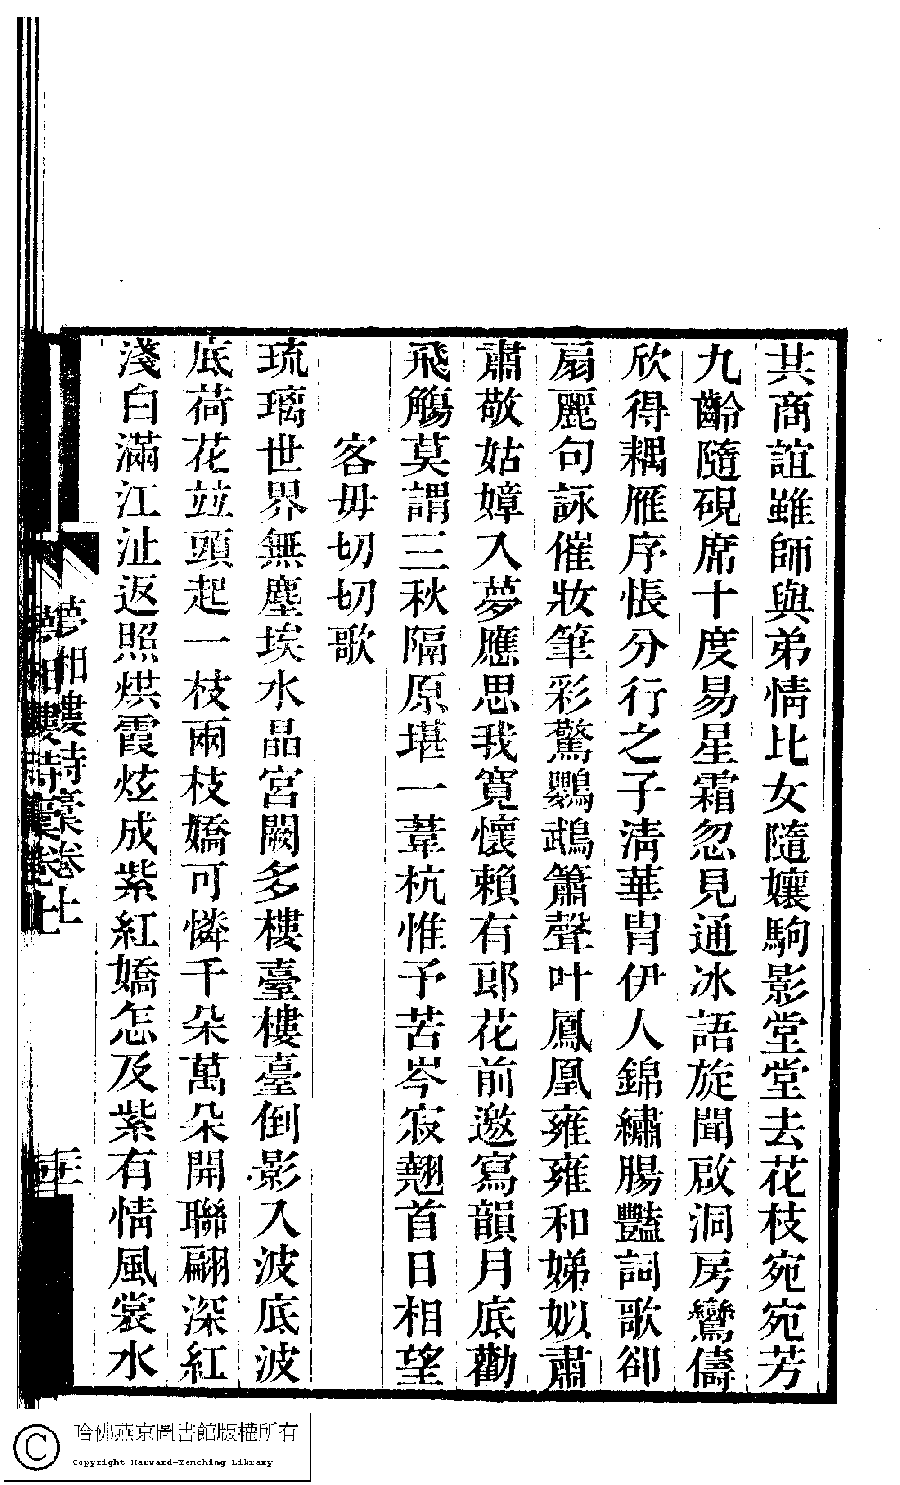 共商誼雖師與弟情比女隨孃駒影堂堂去花枝宛宛芳
九齡隨硯席十度易星霜忽見通冰語旋聞啟洞房鸞儔
欣得耦雁序悵分行之子淸華胄伊人錦繡腸豔詞歌卻
扇麗句詠催妝筆彩驚鸚鵡簫聲叶鳳凰雍雍和娣姒肅
肅敬姑嫜入夢應思我寬懷賴有郎花前邀寫韻月底勸
飛觴莫謂三秋隔原堪一葦杭惟予苦岑寂翹首日相望
客毋切切歌
琉璃世界無塵埃水晶宮闕多樓臺樓臺倒影入波底波
底荷花竝頭起一枝兩枝嬌可憐千朵萬朵開聯翩深紅
淺白滿江沚返照烘霞炫成紫紅嬌怎及紫有情風裳水
夢湘樓詩稾卷上
哈佛燕京圖書館版權所有
Copyright Harvard-Yenching Library